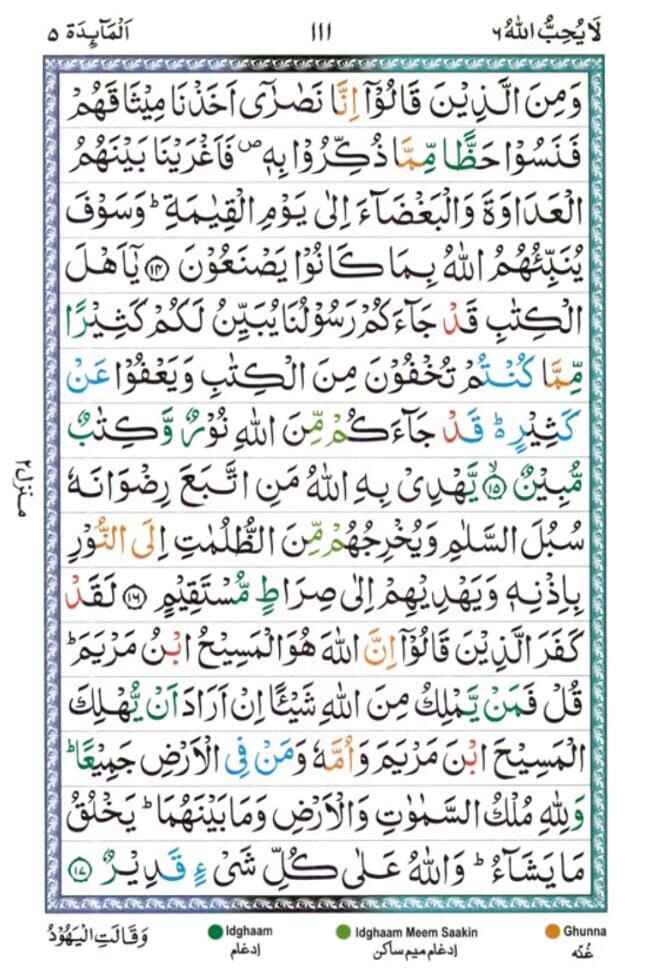 لَا يُحِبُّ اللهُ ٦ ١١١ اَلْمَآئِدَة ٥
وَمِنَ الَّذِيْنَ قَالُوْۤا اِنَّا نَصٰرٰٓى اَخَذْنَا مِيْثَاقَهُمْ
فَنَسُوْا حَظًّا مِّمَّا ذُكِّرُوْا بِهٖ ۪ فَاَغْرَيْنَا بَيْنَهُمُ
الْعَدَاوَةَ وَالْبَغْضَآءَ اِلٰى يَوْمِ الْقِيٰمَةِ ؕ وَسَوْفَ
يُنَبِّئُهُمُ اللهُ بِمَا كَانُوْا يَصْنَعُوْنَ ﴿١٤﴾ يٰۤاَهْلَ
الْكِتٰبِ قَدْ جَآءَكُمْ رَسُوْلُنَا يُبَيِّنُ لَكُمْ كَثِيْرًا
مِّمَّا كُنْتُمْ تُخْفُوْنَ مِنَ الْكِتٰبِ وَيَعْفُوْا عَنْ
كَثِيْرٍ ؕ قَدْ جَآءَكُمْ مِّنَ اللهِ نُوْرٌ وَّكِتٰبٌ
مُّبِيْنٌ ﴿١٥﴾ يَّهْدِيْ بِهِ اللهُ مَنِ اتَّبَعَ رِضْوَانَهٗ
سُبُلَ السَّلٰمِ وَيُخْرِجُهُمْ مِّنَ الظُّلُمٰتِ اِلَى النُّوْرِ
بِاِذْنِهٖ وَيَهْدِيْهِمْ اِلٰى صِرَاطٍ مُّسْتَقِيْمٍ ﴿١٦﴾ لَقَدْ
كَفَرَ الَّذِيْنَ قَالُوْۤا اِنَّ اللهَ هُوَ الْمَسِيْحُ ابْنُ مَرْيَمَ ؕ
قُلْ فَمَنْ يَّمْلِكُ مِنَ اللهِ شَيْئًا اِنْ اَرَادَ اَنْ يُّهْلِكَ
الْمَسِيْحَ ابْنَ مَرْيَمَ وَاُمَّهٗ وَمَنْ فِى الْاَرْضِ جَمِيْعًا ؕ
وَلِلّٰهِ مُلْكُ السَّمٰوٰتِ وَالْاَرْضِ وَمَا بَيْنَهُمَا ؕ يَخْلُقُ
مَا يَشَآءُ ؕ وَاللهُ عَلٰى كُلِّ شَىْءٍ قَدِيْرٌ ﴿١٧﴾
منزل ٢
وَقَالَتِ الْيَهُوْدُ
Idghaam Idghaam Meem Saakin Ghunna
إدغام إدغام ميم ساكن غُنّه